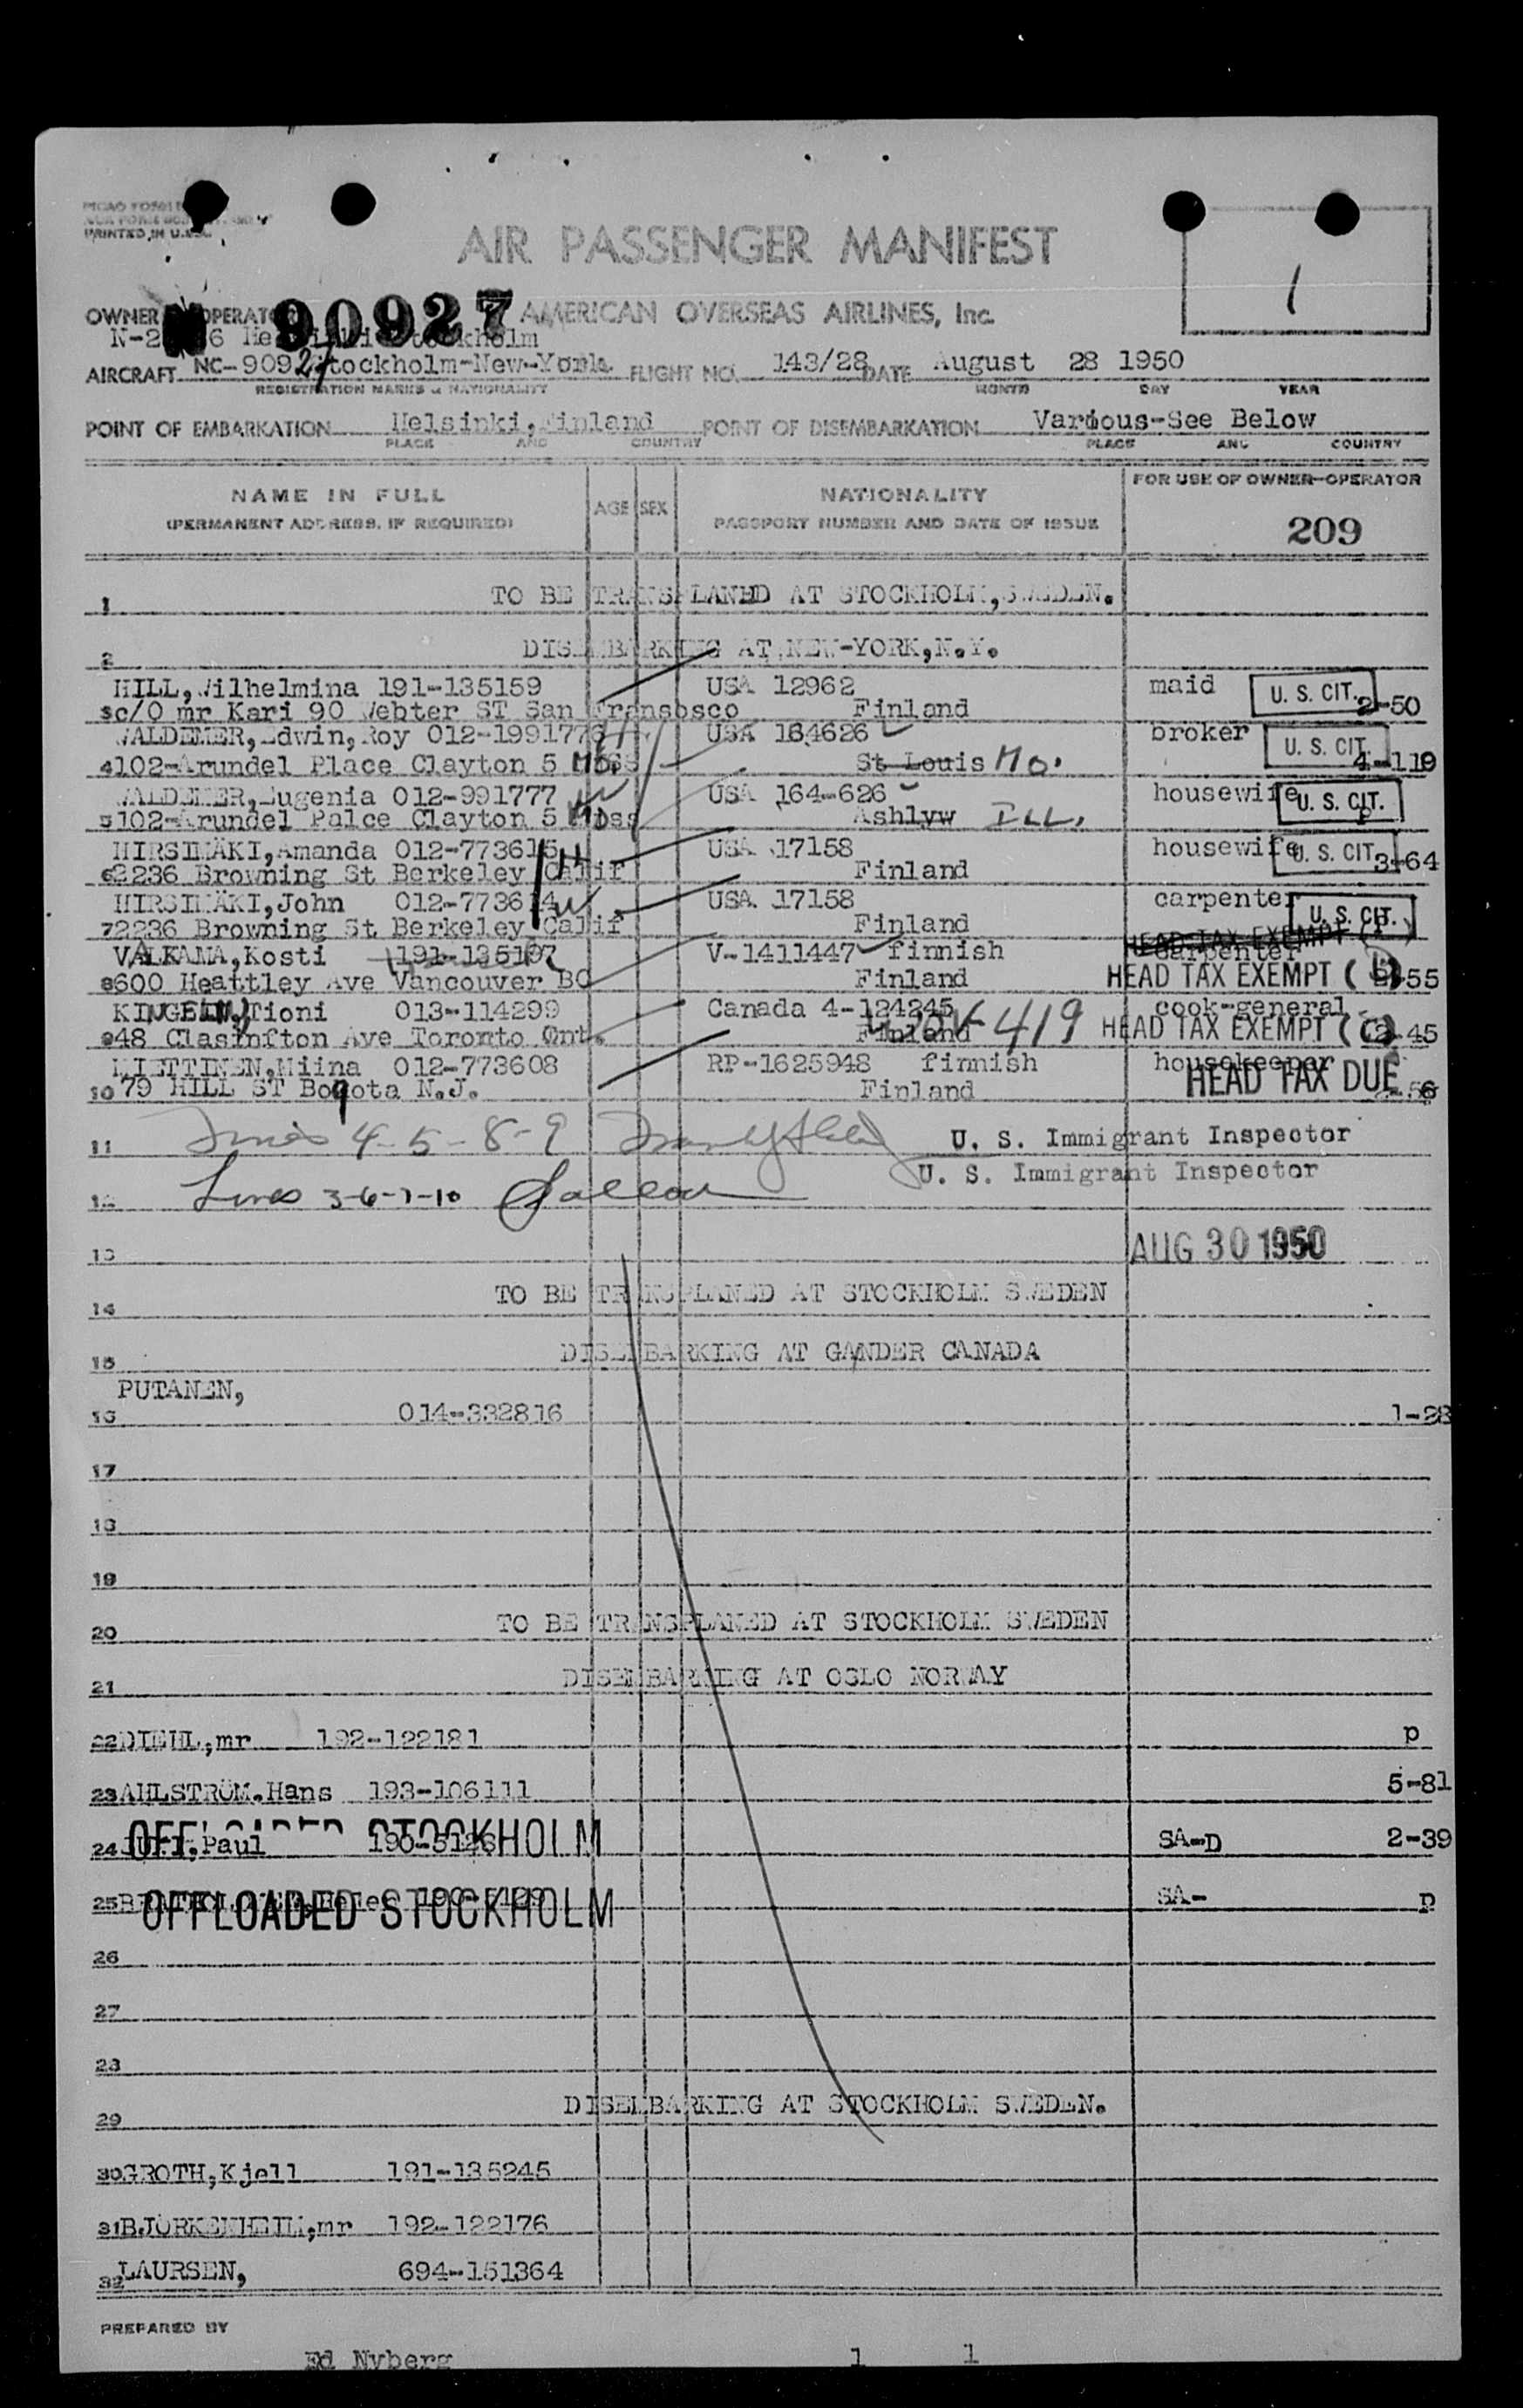 PRINTED IN U.S.A.
AIR PASSENGER MANIFEST
1
OWNER OPERATOR 90927 AMERICAN OVERSEAS AIRLINES, Inc.
AIRCRAFT NC-90927 Stockholm-New-York FLIGHT NO. 143/28 DATE August 28 1950
REGISTRATION MARKS & NATIONALITY MONTH DAY YEAR
POINT OF EMBARKATION Helsinki,Finland POINT OF DISEMBARKATION Various-See Below
PLACE AND COUNTRY PLACE AND COUNTRY
NAME IN FULL AGE SEX NATIONALITY FOR USE OF OWNER-OPERATOR
(PERMANENT ADDRESS, IF REQUIRED) PASSPORT NUMBER AND DATE OF ISSUE 209
1 TO BE TRANSPLANED AT STOCKHOLM,SWEDEN.
2 DISEMBARKING AT NEW-YORK,N.Y.
HILL,Wilhelmina 191-135159 USA 12962 maid U. S. CIT.
3 c/O mr Kari 90 Webter ST San Fransosco Finland 2-50
WALDEMER,Edwin,Roy 012-1991776 USA 164626 broker U. S. CIT.
4 102-Arundel Place Clayton 5 Mo. St Louis Mo. 4-119
WALDEMER,Eugenia 012-991777 USA 164-626 housewife U. S. CIT.
5 102-Arundel Palce Clayton 5 Ashlyw ILL. p
HIRSIMÄKI,Amanda 012-773615 USA 17158 housewife U. S. CIT.
6 2236 Browning St Berkeley Calif Finland 3-64
HIRSIMÄKI,John 012-773614 USA 17158 carpenter U. S. CIT.
7 2236 Browning St Berkeley Calif Finland HEAD TAX EXEMPT
VALKAMA,Kosti 191-135197 V-1411447 finnish carpenter
8 600 Heattley Ave Vancouver BC Finland HEAD TAX EXEMPT ( ) -55
Tioni 013-114299 Canada 4-124245 cook-general
9 48 Clasinfton Ave Toronto Ont. Finland 419 HEAD TAX EXEMPT (C) 2-45
MIETTINEN,Miina 012-773608 RP-1625948 finnish housekeeper
10 79 HILL ST Bogota N.J. Finland HEAD TAX DUE 56
11 Lines 4-5-8-9 U. S. Immigrant Inspector
12 Lines 3-6-7-10 U. S. Immigrant Inspector
13 AUG 30 1950
14 TO BE TRANSPLANED AT STOCKHOLM SWEDEN
15 DISEMBARKING AT GANDER CANADA
PUTANEN,
16 014-332816 1-28
17
18
19
20 TO BE TRANSPLANED AT STOCKHOLM SWEDEN
21 DISEMBARKING AT OSLO NORWAY
22 DIEHL,mr 192-122181 p
23 AHLSTRÖM.Hans 193-106111 5-81
24 Paul OFFLOADED STOCKHOLM SA-D 2-39
25 OFFLOADED STOCKHOLM SA- p
26
27
28
29 DISEMBARKING AT STOCKHOLM SWEDEN.
30 GROTH,Kjell 191-135245
31 BJORKENHEIM,mr 192-122176
32 LAURSEN, 694-151364
PREPARED BY
Ed Nyberg 1 1